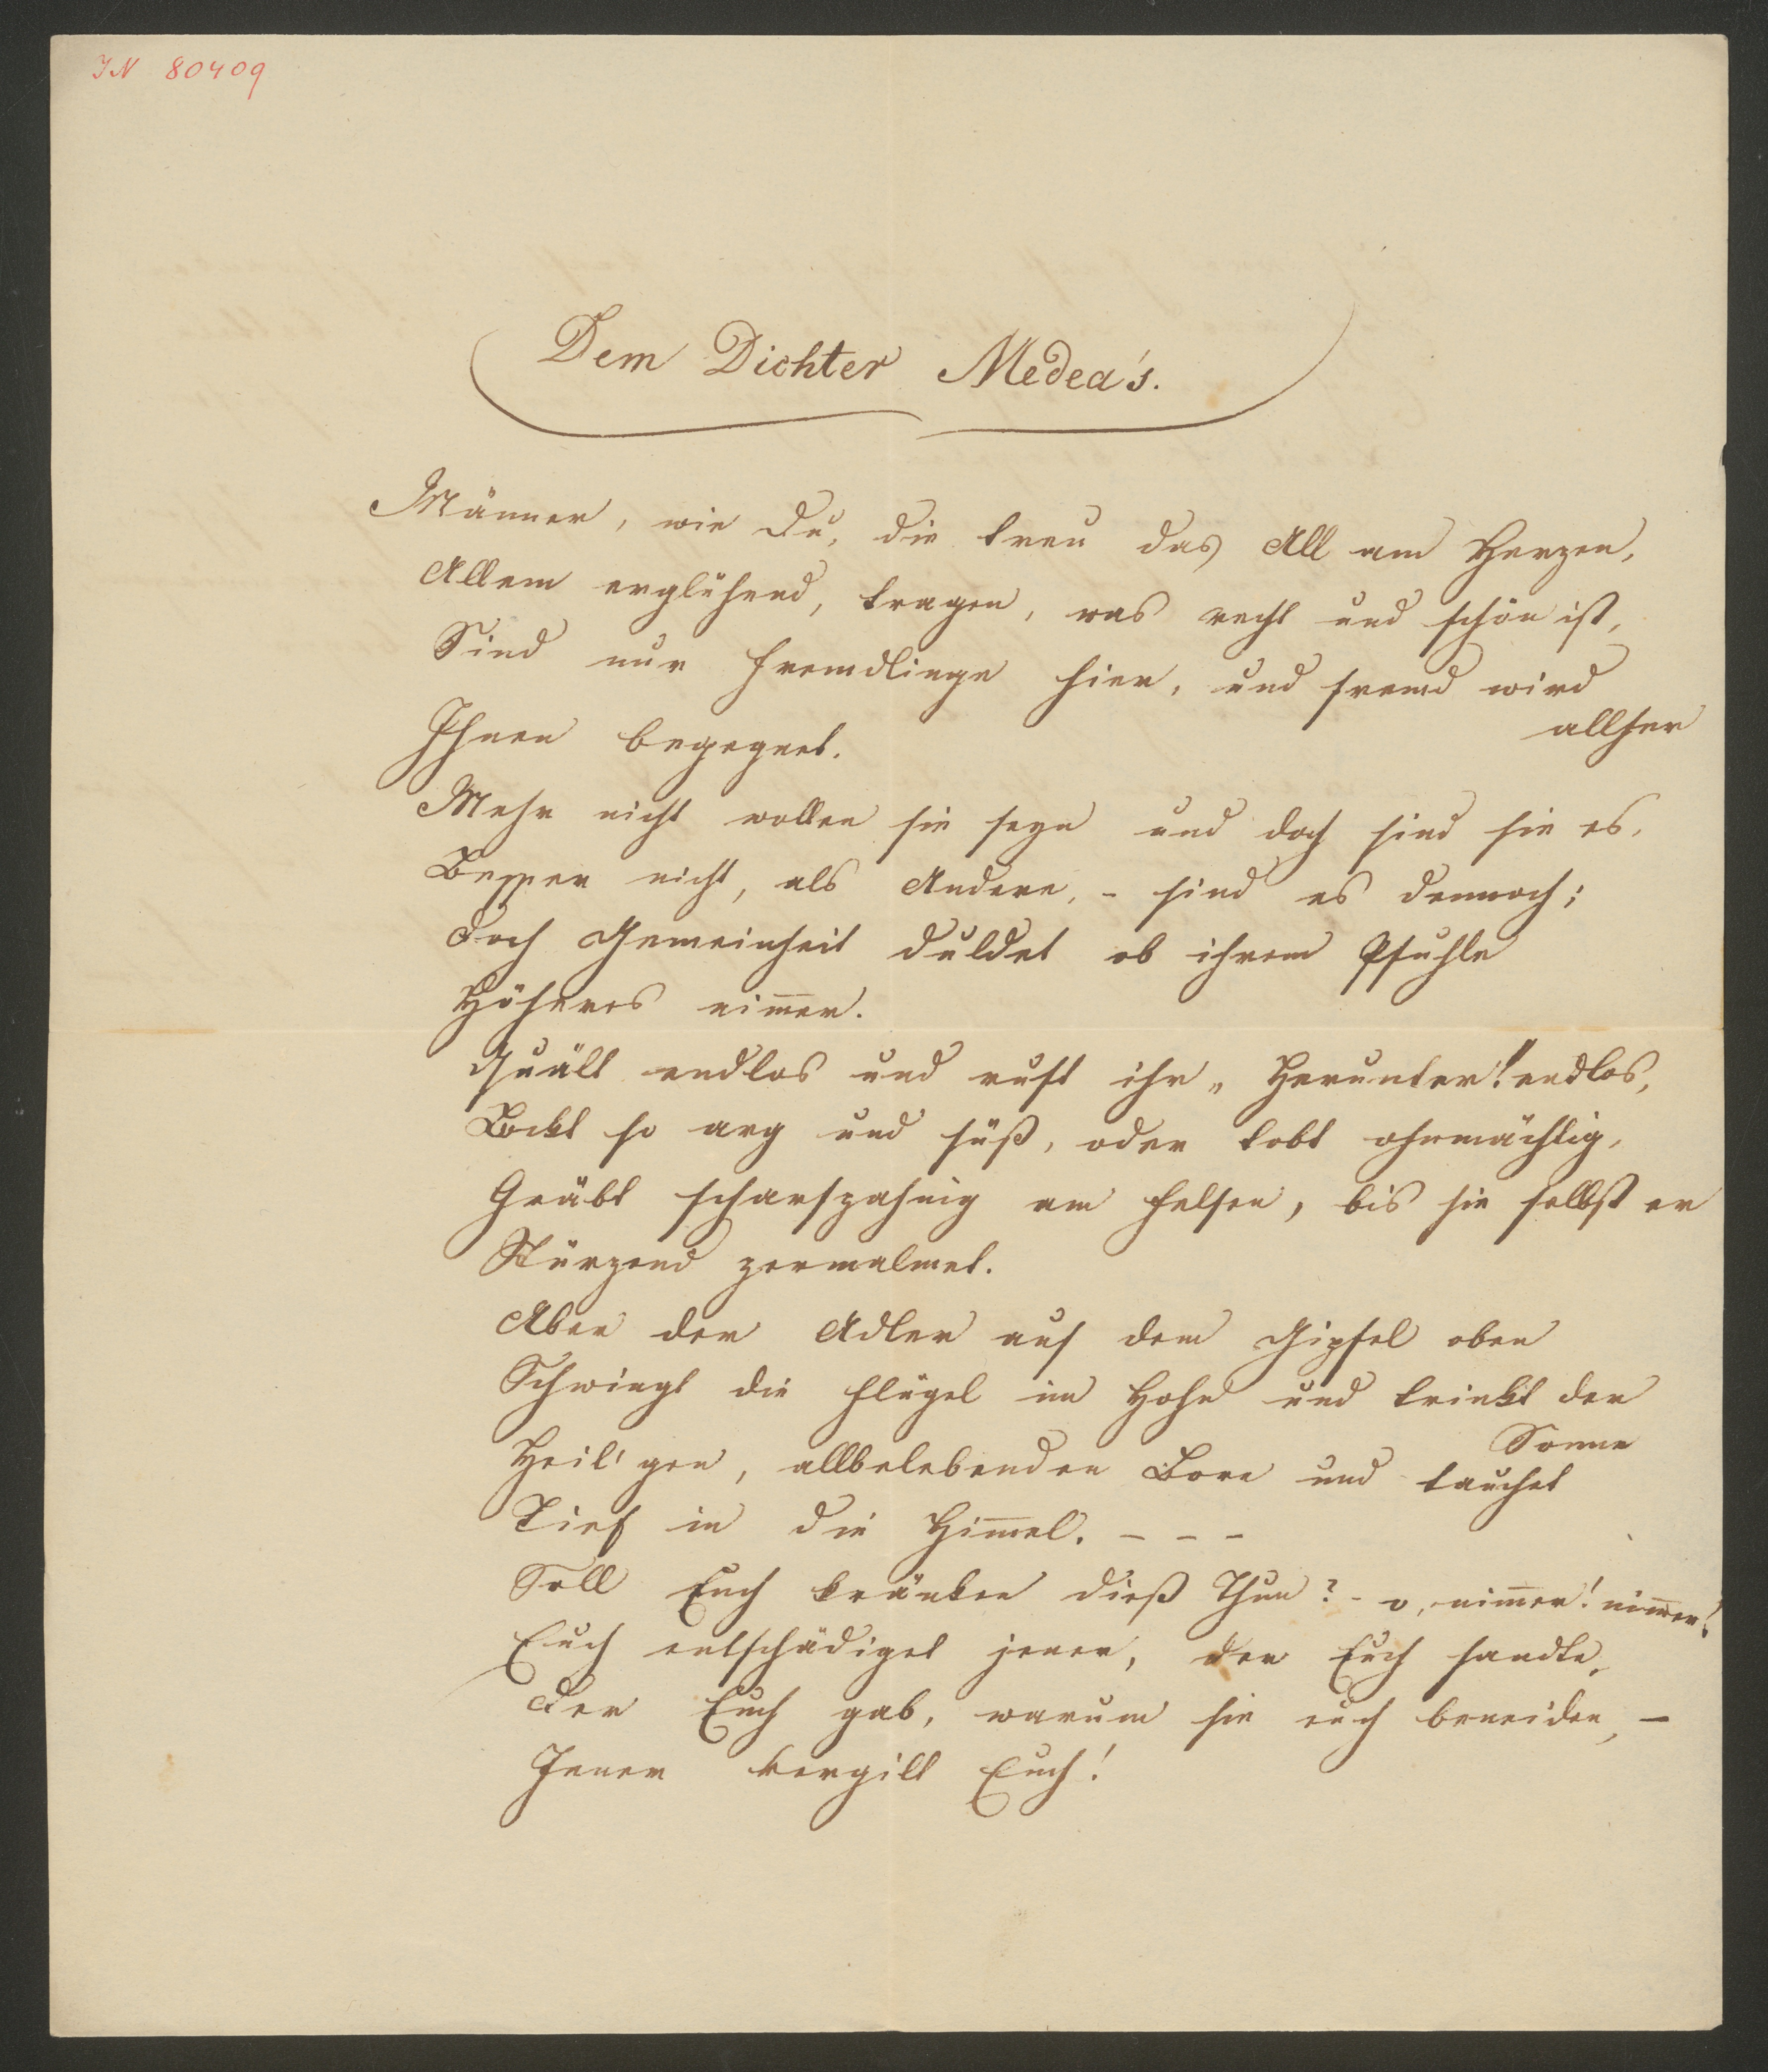 IN 80409
Dem Dichter Medea's.
Männer, wie Du, die treu das All am Herzen,
Allem erglühend, tragen, was recht und schön ist,
Sind nur Fremdlinge hier, und fremd wird
allher
Ihnen begegnet.
Mehr nicht wollen sie seyn und doch sind sie es,
Besser nicht, als Andere, - sind es dennoch;
Doch Gemeinheit duldet ob ihrem Pfuhle
Höheres nim̅er.
Quält endlos und ruft ihr „Herunter!" endlos,
Lockt so arg und süß, oder tobt ohnmächtig,
Gräbt scharfzahnig am Felsen, bis sie selbst er
Stürzend zermalmet.
Aber der Adler auf dem Gipfel oben
Schwingt die Flügel im Hohn und trinkt der
Sonne
Heil'gen, allbelebenden Born und tauchet
Tief in die Him̅el. - - -
Soll Euch kränken dieß Thun? - o, nim̅er! nim̅er!
Euch entschädiget jener, der Euch sandte,
Der Euch gab, warum sie euch beneiden, -
Jener vergilt Euch!